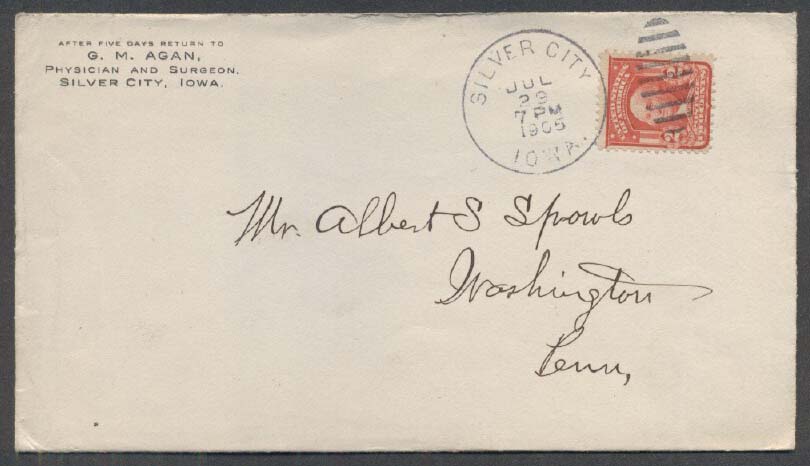 AFTER FIVE DAYS RETURN TO
G. M. AGAN,
PHYSICIAN AND SURGEON.
SILVER CITY, IOWA.
SILVER CITY
JUL
29
7 PM
1905
IOWA.
Mr. Albert S Sprowls
Washington
Penn,